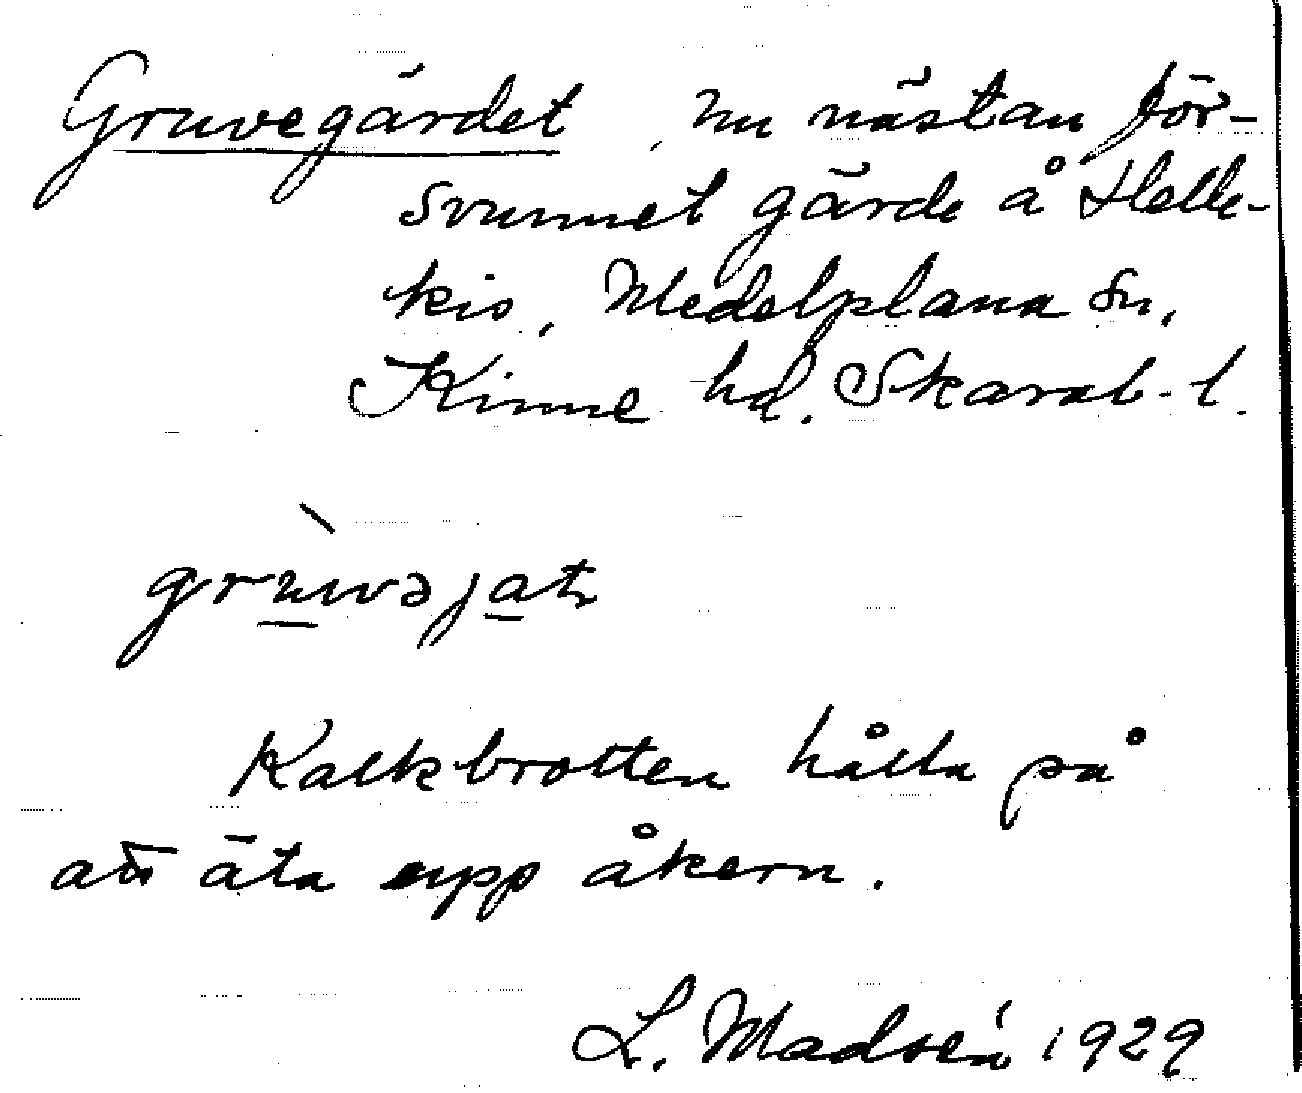 Gruvegärdet, nu nästan för-
svunnet gärde å Helle-
kis, Medelplana sn,
Kinne hd. Skarab. l.
grùwəjat
Kalkbrotten hålla på
att äta upp åkern.
L. Madsén 1929